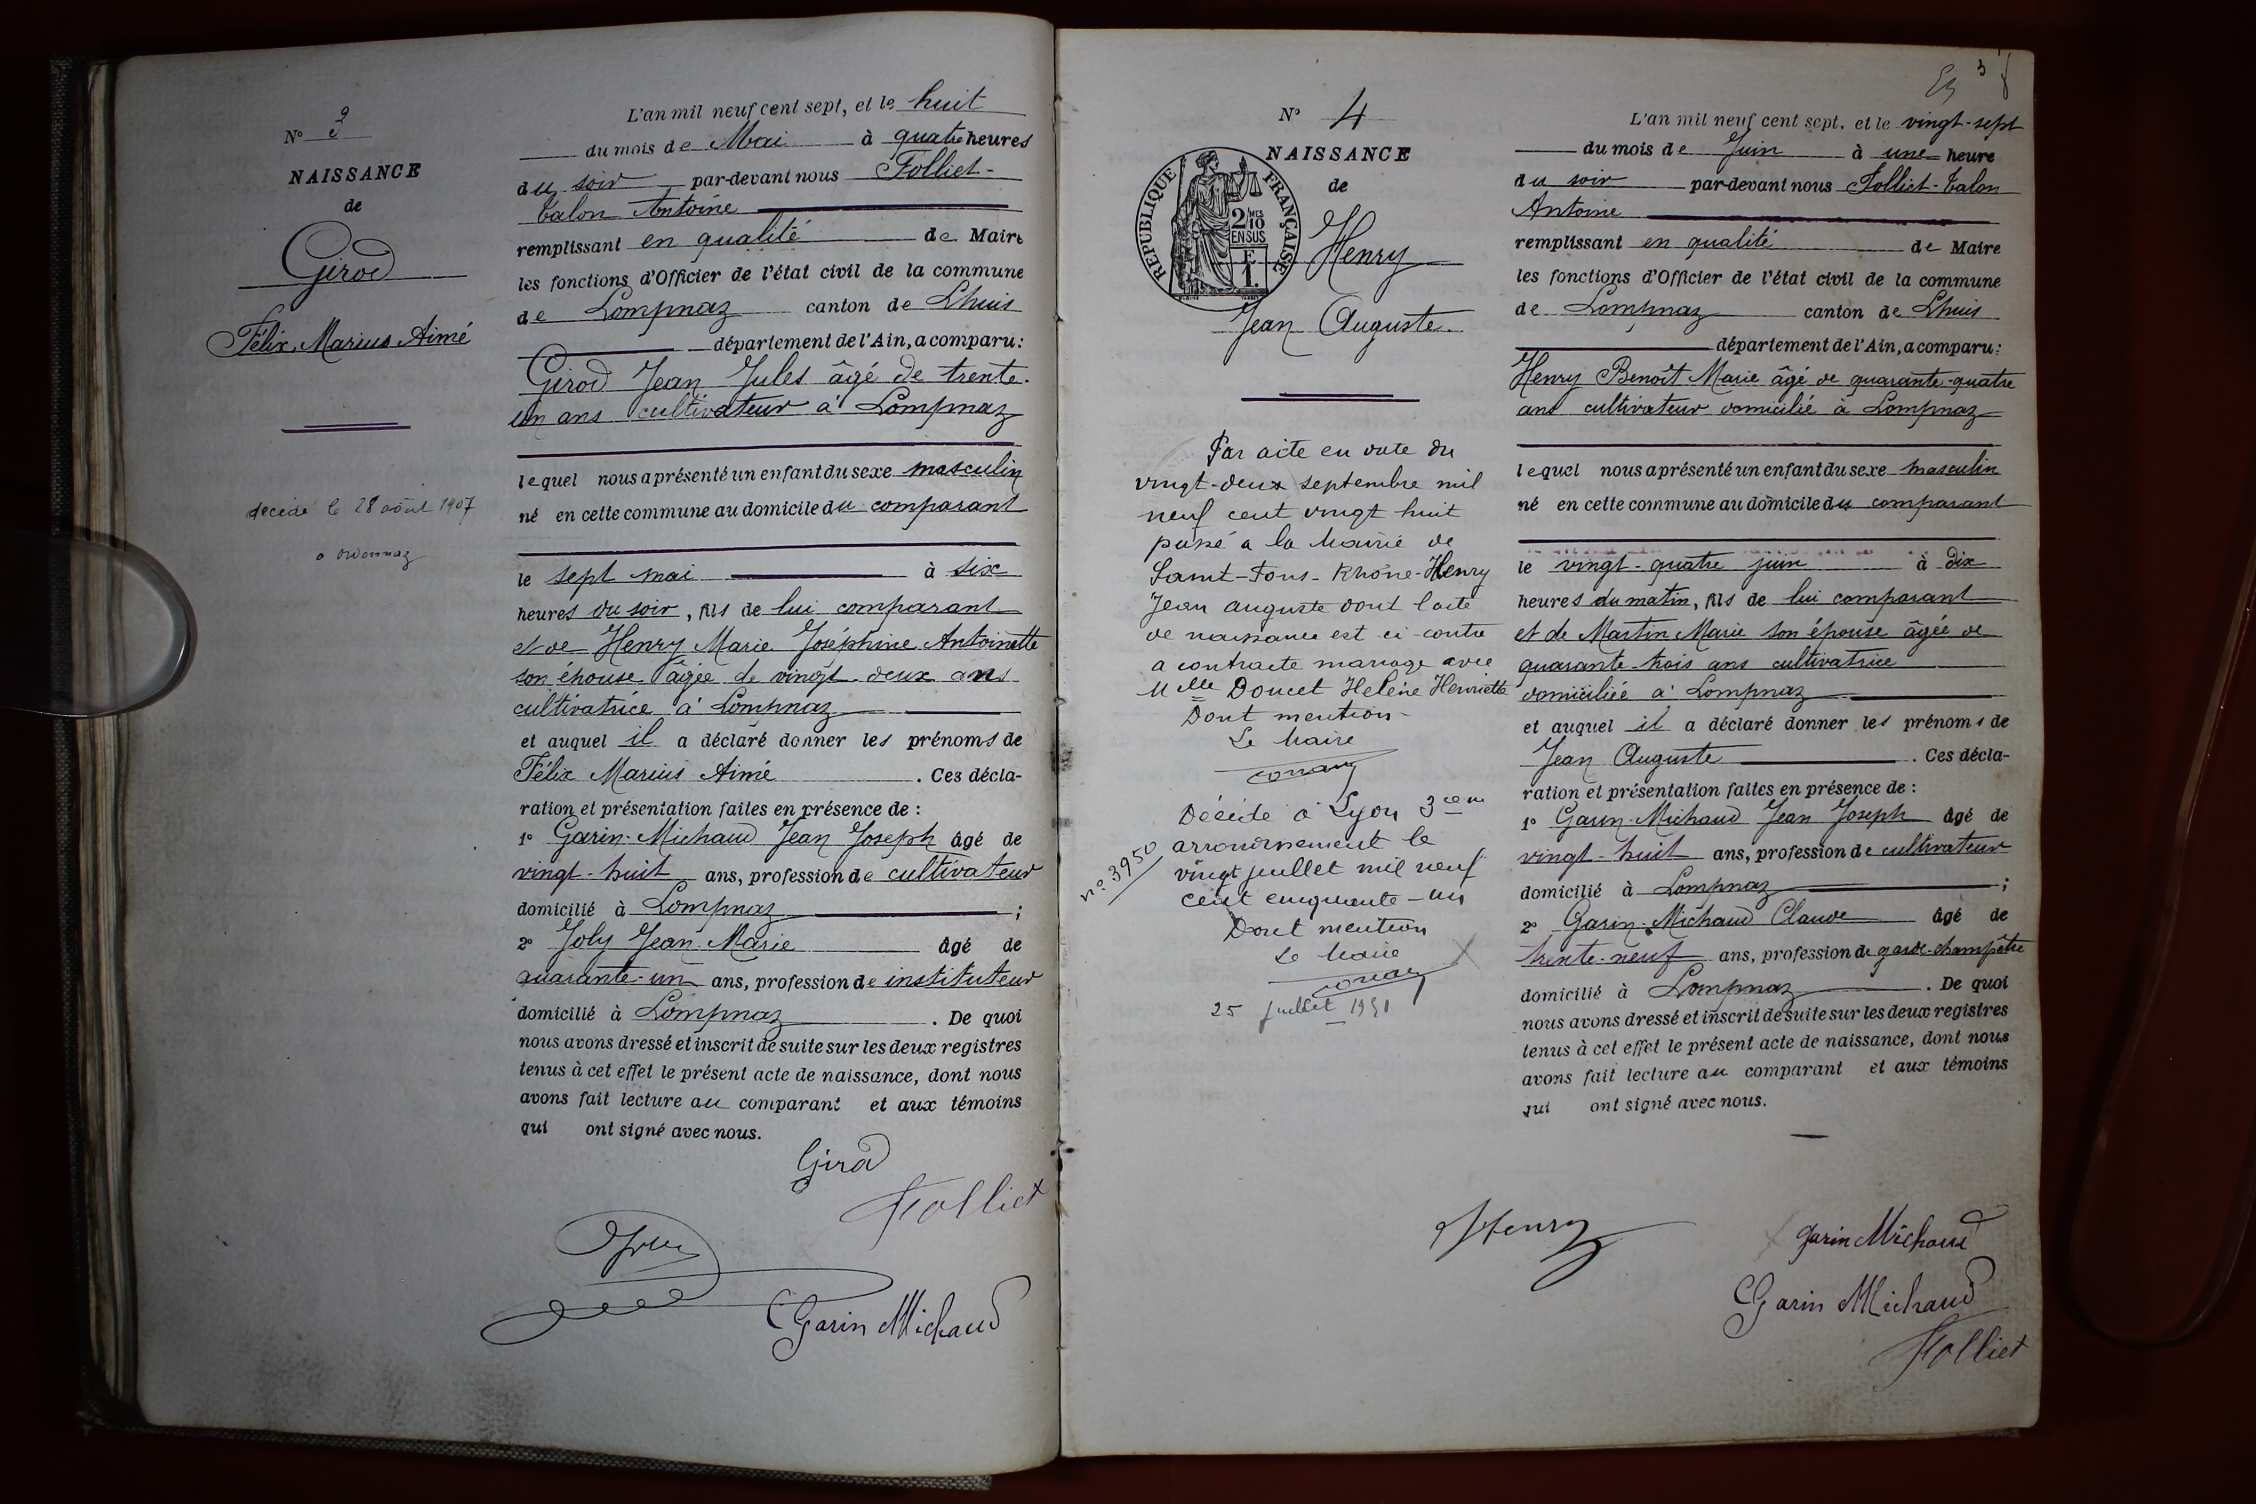 N° 3
NAISSANCE
de
Girod
Félix Marius Aimé
décédé le 28 août 1907
à Ordonnaz
L'an mil neuf cent sept, et le huit
du mois de Mai à quatre heures
du soir par-devant nous Folliet-
Talon Antoine
remplissant en qualité de Maire
les fonctions d'Officier de l'état civil de la commune
de Lompnaz canton de Lhuis
département de l'Ain, a comparu:
Girod Jean Jules âgé de trente-
un ans cultivateur à Lompnaz
lequel nous a présenté un enfant du sexe masculin
né en cette commune au domicile du comparant
le sept mai à six
heures du soir, fils de lui comparant
et de Henry Marie Joséphine Antoinette
son épouse âgée de vingt-deux ans
cultivatrice à Lompnaz
et auquel il a déclaré donner les prénoms de
Félix Marius Aimé. Ces décla-
ration et présentation faites en présence de :
1° Garin-Michaud Jean Joseph âgé de
vingt-huit ans, profession de cultivateur
domicilié à Lompnaz ;
2° Joly Jean-Marie âgé de
quarante-un ans, profession de instituteur
domicilié à Lompnaz. De quoi
nous avons dressé et inscrit de suite sur les deux registres
tenus à cet effet le présent acte de naissance, dont nous
avons fait lecture au comparant et aux témoins
qui ont signé avec nous.
Girod
Folliet
Joly
Garin Michaud
3
N° 4
NAISSANCE
de
RÉPUBLIQUE FRANÇAISE
2/10 MES
EN SUS
F.
1.
Henry
Jean Auguste
Par acte en date du
vingt-deux septembre mil
neuf cent vingt huit
passé à la Mairie de
Saint-Fons-Rhône-Henry
Jean auguste dont l'acte
de naissance est ci-contre
a contracté mariage avec
Melle Doucet Helène Henriette
Dont mention
Le Maire
Décédé à Lyon 3ème
arrondissement le
vingt juillet mil neuf
cent cinquante-un
n° 3950
Dont mention
Le Maire
25 juillet 1951
L'an mil neuf cent sept, et le vingt-sept
du mois de Juin à une heure
du soir par-devant nous Folliet-Talon
Antoine
remplissant en qualité de Maire
les fonctions d'Officier de l'état civil de la commune
de Lompnaz canton de Lhuis
département de l'Ain, a comparu:
Henry Benoît Marie âgé de quarante-quatre
ans cultivateur domicilié à Lompnaz
lequel nous a présenté un enfant du sexe masculin
né en cette commune au domicile du comparant
le vingt-quatre juin à dix
heures du matin, fils de lui comparant
et de Martin Marie son épouse âgée de
quarante-trois ans cultivatrice
domiciliée à Lompnaz
et auquel il a déclaré donner les prénoms de
Jean Auguste. Ces décla-
ration et présentation faites en présence de :
1° Garin-Michaud Jean Joseph âgé de
vingt-huit ans, profession de cultivateur
domicilié à Lompnaz ;
2° Garin-Michaud Claude âgé de
trente-neuf ans, profession de garde-champêtre
domicilié à Lompnaz. De quoi
nous avons dressé et inscrit de suite sur les deux registres
tenus à cet effet le présent acte de naissance, dont nous
avons fait lecture au comparant et aux témoins
qui ont signé avec nous.
Henry
Garin Michaud
Garin Michaud
Folliet